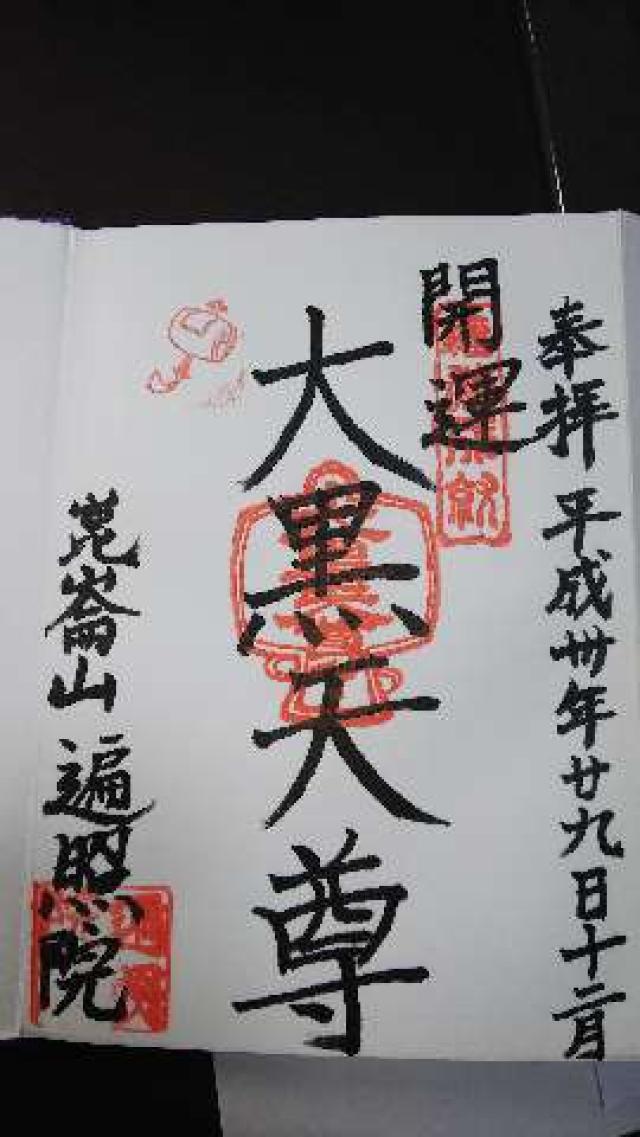 奉拝 平成卅年廿九日十二月
開運
大黒天尊
崑崙山 遍照院